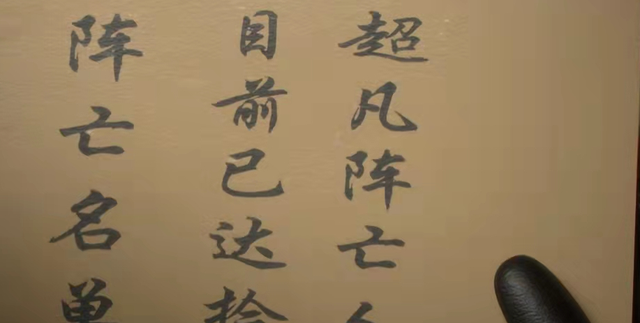 超凡阵亡
目前已达拾
阵亡名单